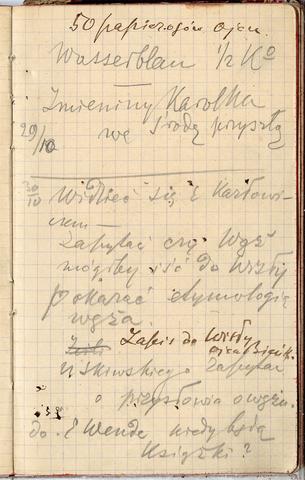 50 papierosów Ojcu.
Wasserblau ½ Ko
Imieniny Karolka
29/10 we środę przyszłą
30/10 Widzieć się z Karłowi-
czem
Zapytać czy Wąż
mógłby iść do Wisły
pokazać etymologię
węża.
Zapis do Wisły
U Skiwskiego Zapytać
o przysłowia o wężu.
do. E Wende kiedy będą
Książki?